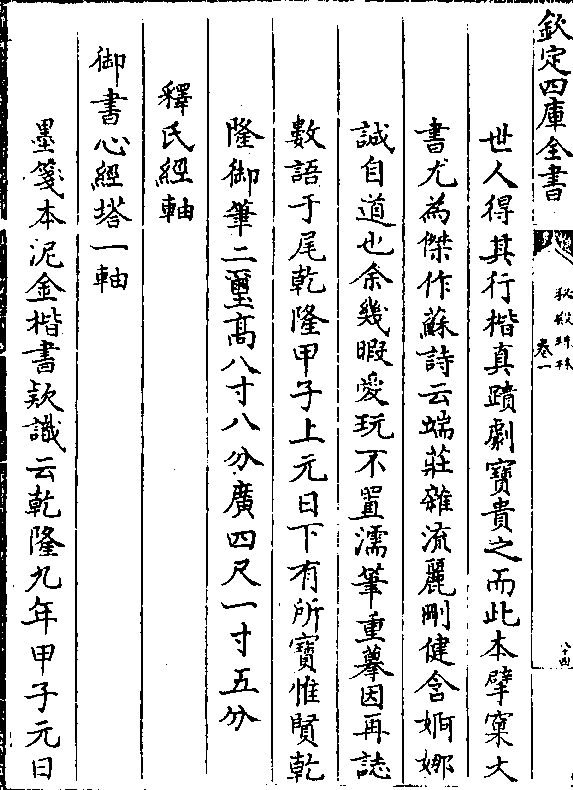 欽定四庫全書
秘殿珠林
卷一
八十四
世人得其行楷真蹟劇寶貴之而此本擘窠大
書尤為傑作蘇詩云端莊雜流麗剛健含婀娜
誠自道也余幾暇愛玩不置濡筆重摹因再誌
數語于尾乾隆甲子上元日下有所寶惟賢乾
隆御筆二璽高八寸八分廣四尺一寸五分
釋氏經軸
御書心經塔一軸
墨箋本泥金楷書欵識云乾隆九年甲子元日